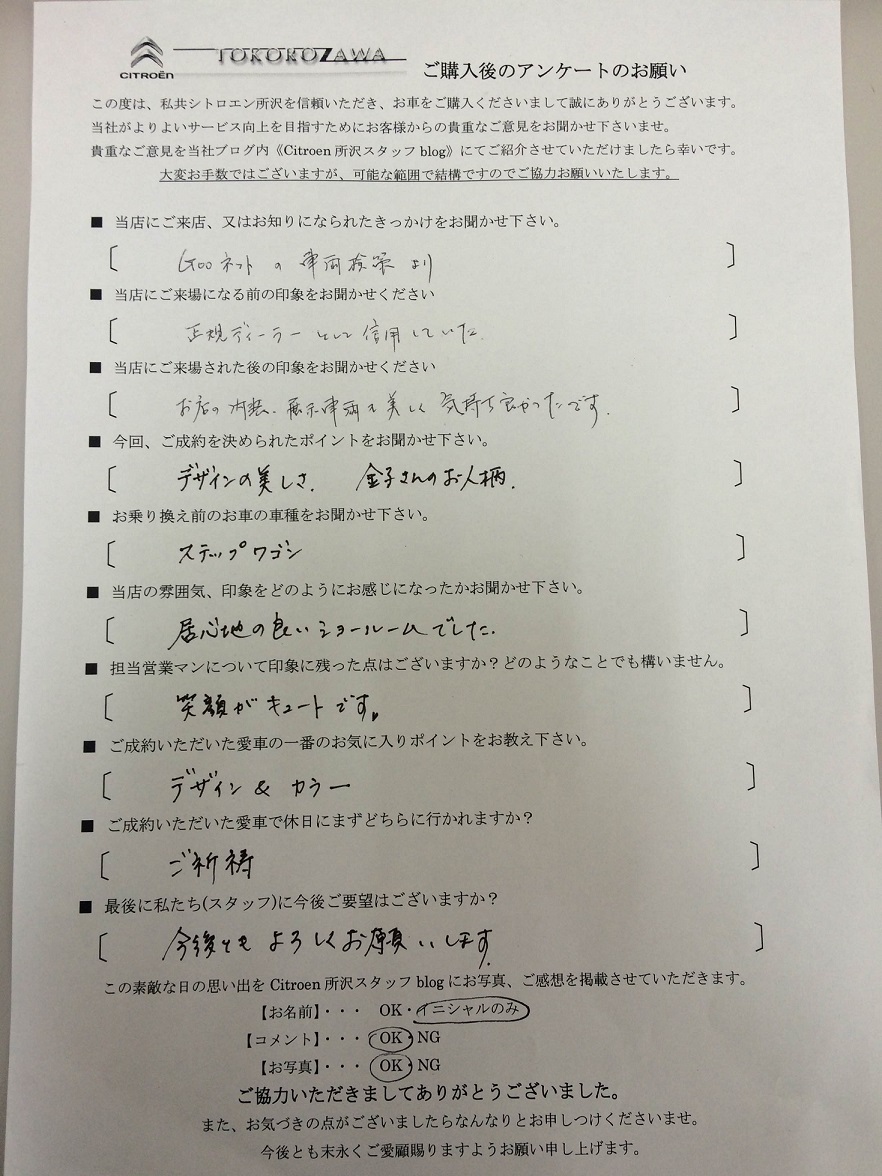 CITROËN
TOKOROZAWA
ご購入後のアンケートのお願い
この度は、私共シトロエン所沢を信頼いただき、お車をご購入くださいまして誠にありがとうございます。
当社がよりよいサービス向上を目指すためにお客様からの貴重なご意見をお聞かせ下さいませ。
貴重なご意見を当社ブログ内《Citroen 所沢スタッフ blog》にてご紹介させていただけましたら幸いです。
大変お手数ではございますが、可能な範囲で結構ですのでご協力お願いいたします。
■ 当店にご来店、又はお知りになられたきっかけをお聞かせ下さい。
〔 Gooネットの車両検索より 〕
■ 当店にご来場になる前の印象をお聞かせください
〔 正規ディーラーとして信用していた. 〕
■ 当店にご来場された後の印象をお聞かせください
〔 お店の内装、展示車両も美しく気持ち良かったです. 〕
■ 今回、ご成約を決められたポイントをお聞かせ下さい。
〔 デザインの美しさ. 金子さんのお人柄. 〕
■ お乗り換え前のお車の車種をお聞かせ下さい。
〔 ステップワゴン 〕
■ 当店の雰囲気、印象をどのようにお感じになったかお聞かせ下さい。
〔 居心地の良いショールームでした. 〕
■ 担当営業マンについて印象に残った点はございますか？どのようなことでも構いません。
〔 笑顔がキュートです。 〕
■ ご成約いただいた愛車の一番のお気に入りポイントをお教え下さい。
〔 デザイン & カラー 〕
■ ご成約いただいた愛車で休日にまずどちらに行かれますか？
〔 ご祈祷 〕
■ 最後に私たち(スタッフ)に今後ご要望はございますか？
〔 今後ともよろしくお願いします. 〕
この素敵な日の思い出を Citroen 所沢スタッフ blog にお写真、ご感想を掲載させていただきます。
【お名前】・・・ OK・イニシャルのみ
【コメント】・・・ OK・NG
【お写真】・・・ OK・NG
ご協力いただきましてありがとうございました。
また、お気づきの点がございましたらなんなりとお申しつけくださいませ。
今後とも末永くご愛顧賜りますようお願い申し上げます。